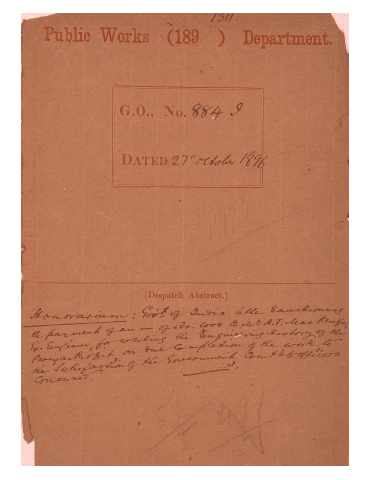 1311
Public Works (189 ) Department.
G.O., No. 884 I
DATED 27th October 1896
(Despatch Abstract.)
Honorarium: Govt. of India letter sanctioning
the payment of an — of Rs. 1000 to Mr. A.T. Mackenzie,
Ex. Engineer, for writing the Engineering History of the
Periyar Project on due completion of the work to
the satisfaction of the Government
Concerned.